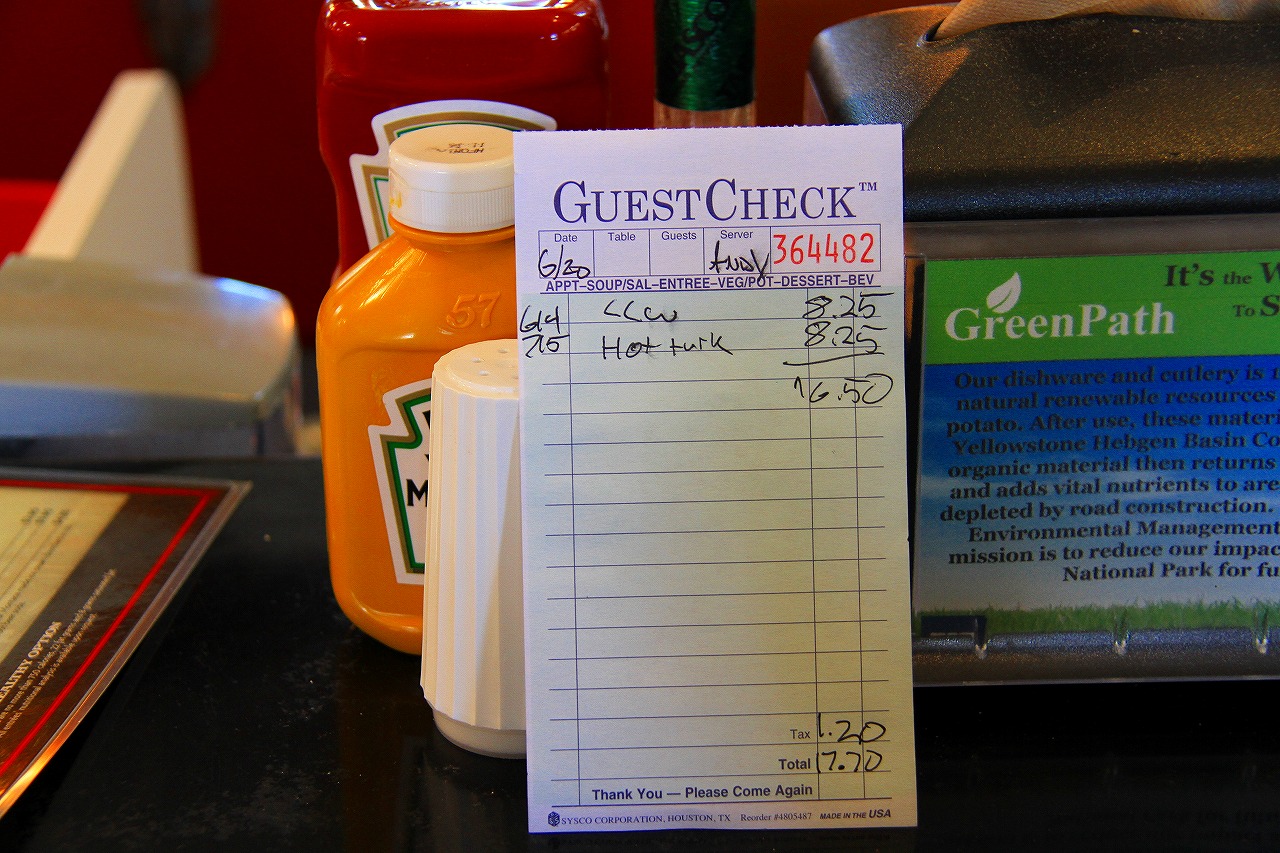 GUESTCHECK™
Date Table Guests Server
6/20 Andy 364482
APPT–SOUP/SAL–ENTREE–VEG/POT–DESSERT–BEV
8.25
Hot turk 8.25
16.50
Tax 1.20
Total 17.70
Thank You — Please Come Again
SYSCO CORPORATION, HOUSTON, TX Reorder #4805487 MADE IN THE USA
57
M
It's the W
To S
GreenPath
Our dishware and cutlery is
natural renewable resources
potato. After use, these materi
Yellowstone Hebgen Basin Co
organic material then returns
and adds vital nutrients to are
depleted by road construction.
Environmental Management
mission is to reduce our impac
National Park for fu
EALTHY OPTION